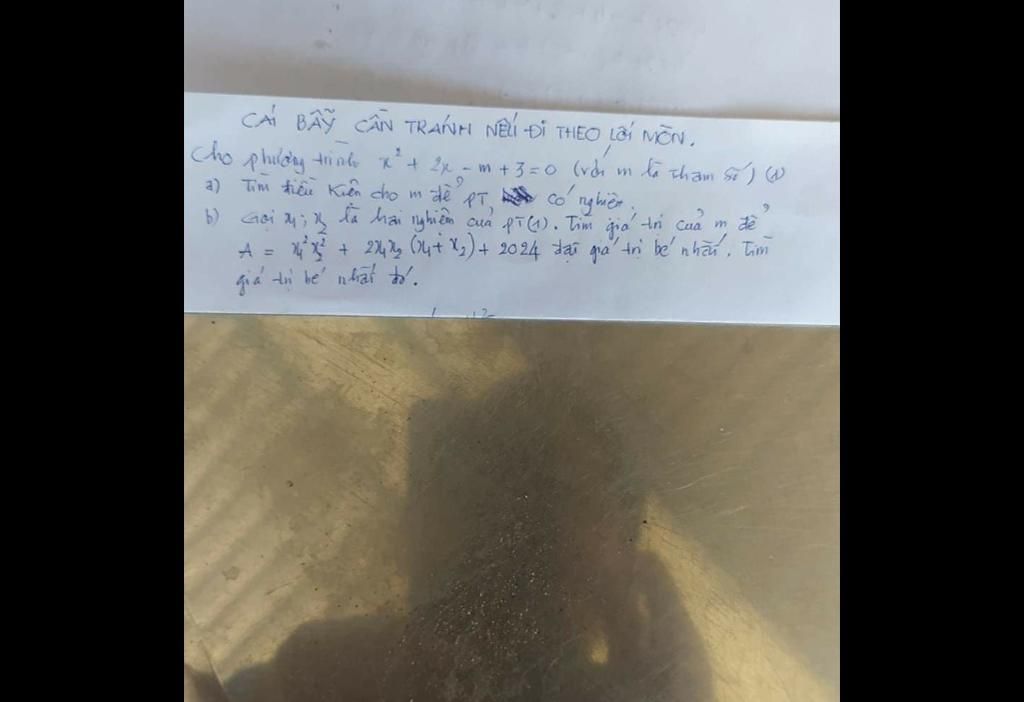 CÁI BẪY CẦN TRÁNH NẾU ĐI THEO LỐI MÒN.
Cho phương trình x² + 2x - m + 3 = 0 (với m là tham số) (1)
a) Tìm điều kiện cho m để PT có nghiệm.
b) Gọi x₁; x₂ là hai nghiệm của PT(1). Tìm giá trị của m để
A = x₁²x₂² + 2x₁x₂(x₁+x₂) + 2024 đạt giá trị bé nhất. Tìm
giá trị bé nhất đó.